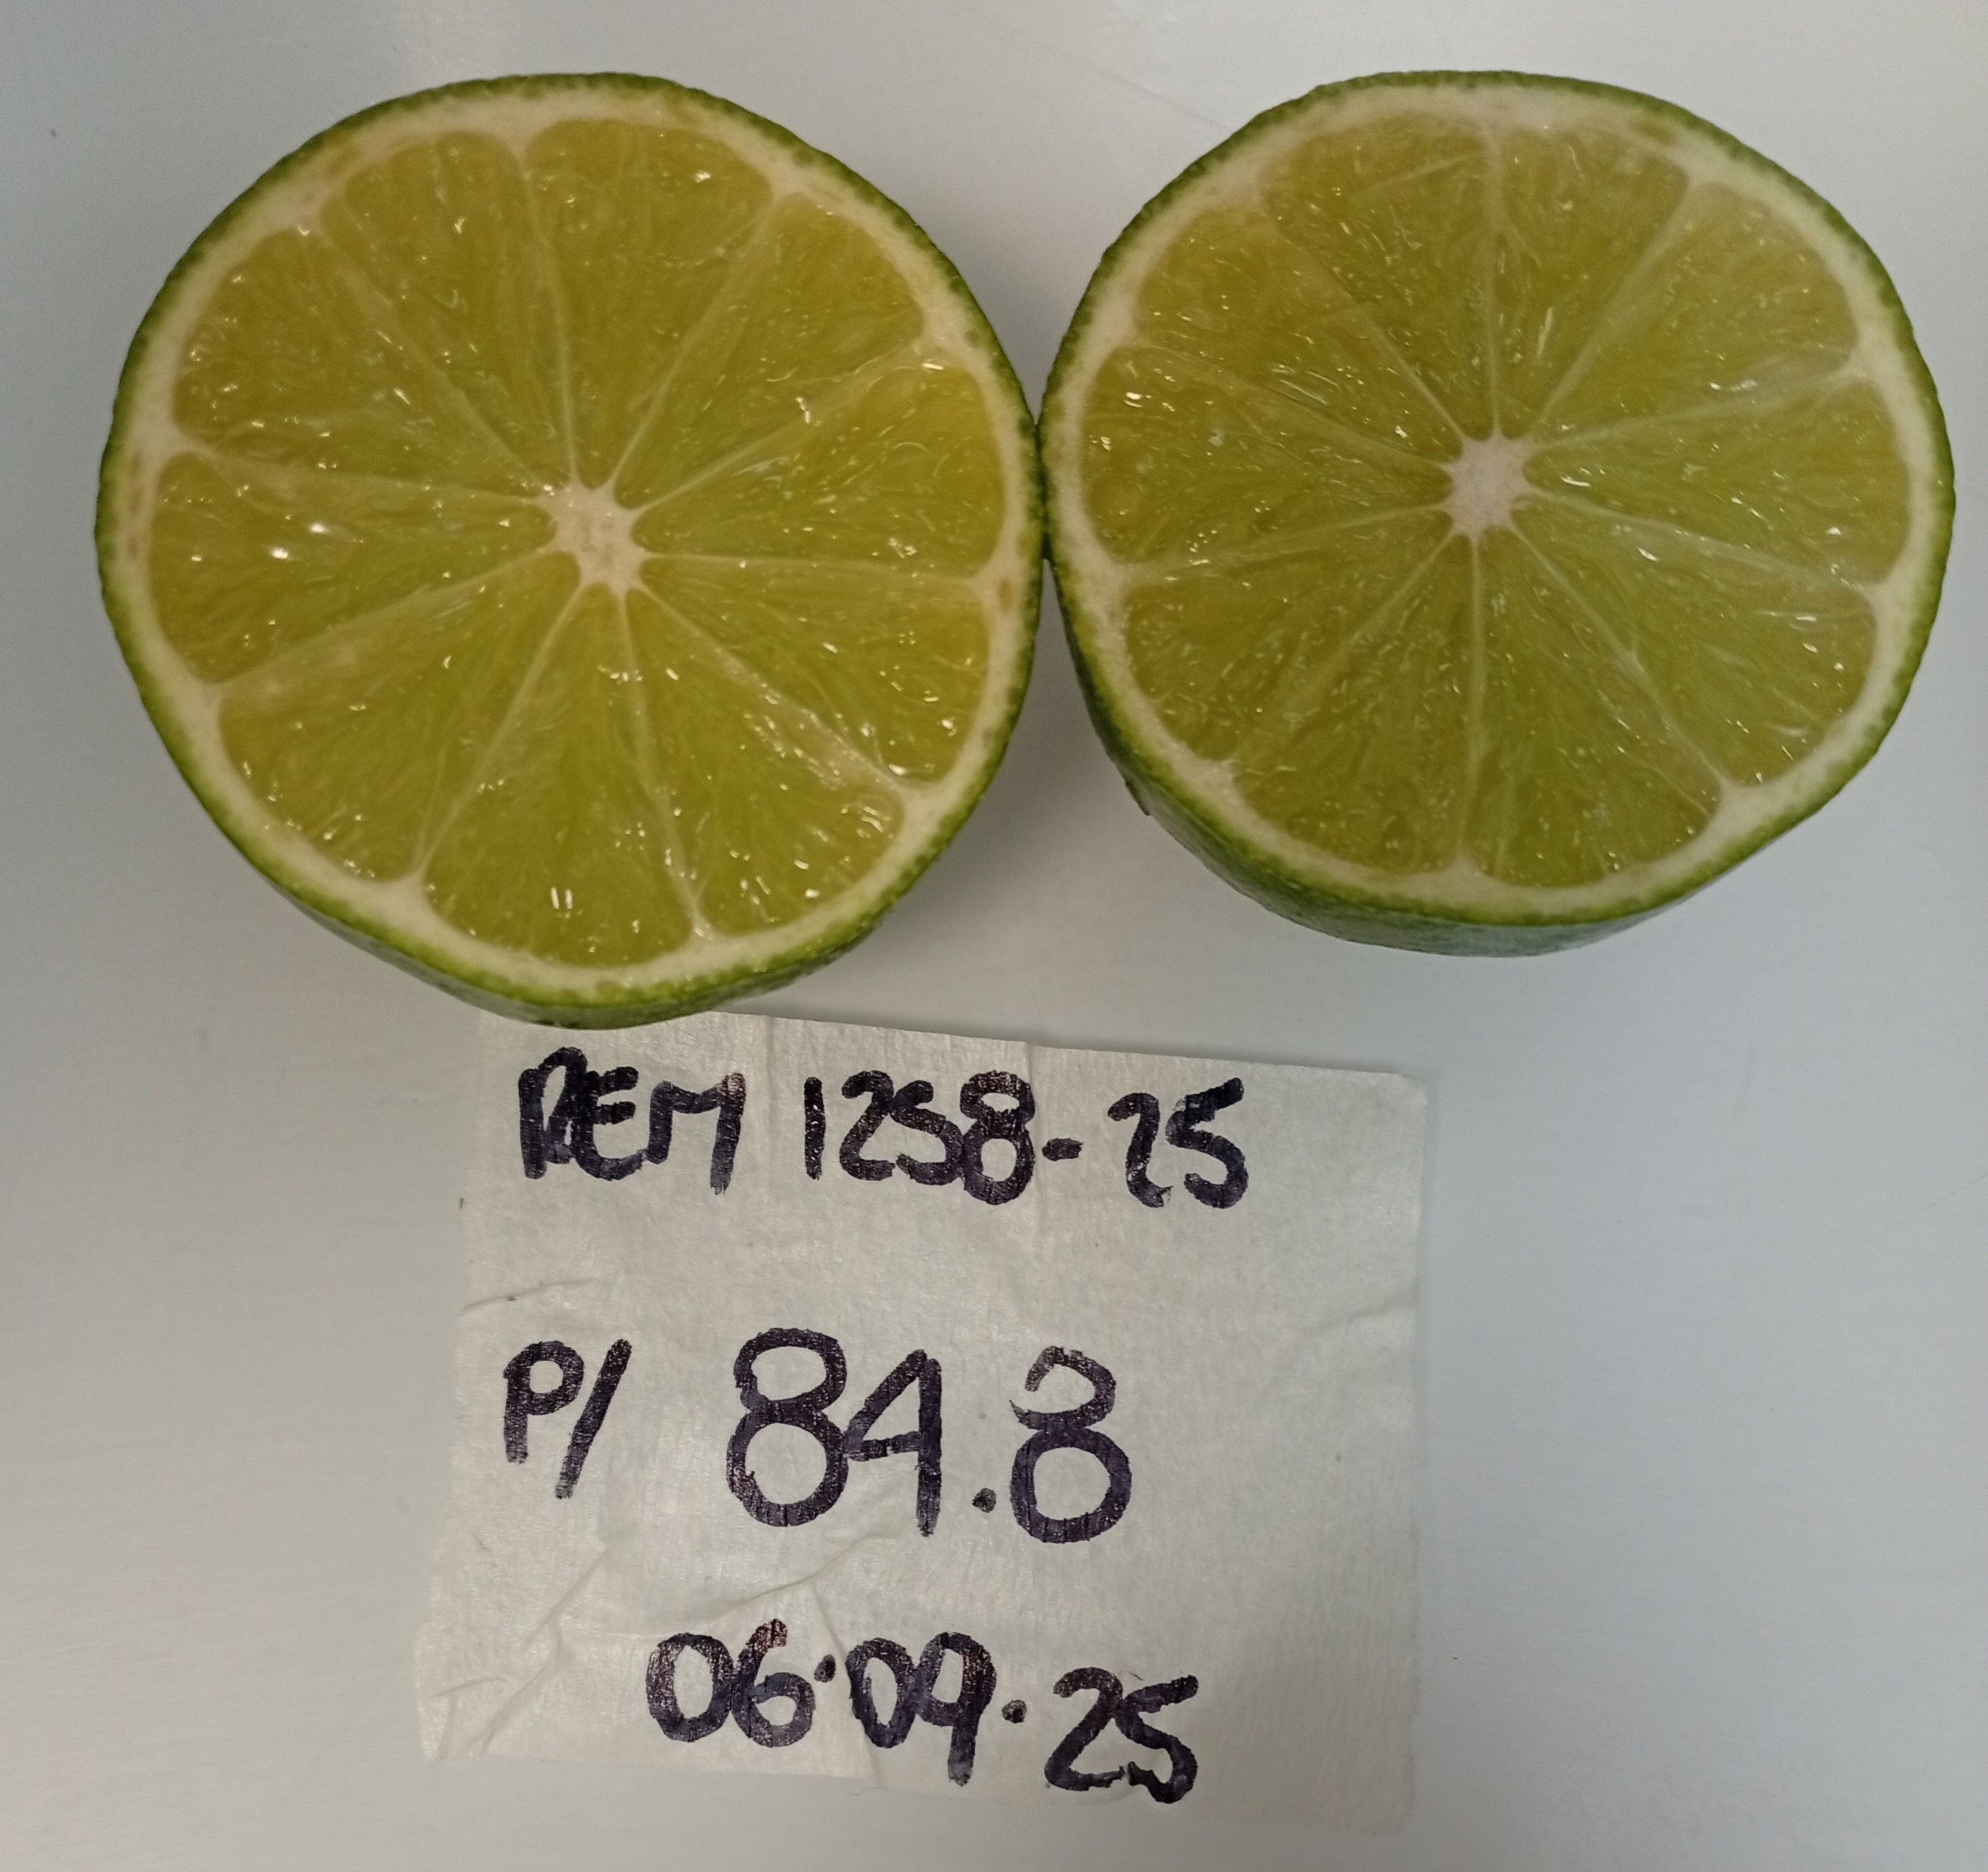 REM 1258-25
P/ 84.8
06.09.25